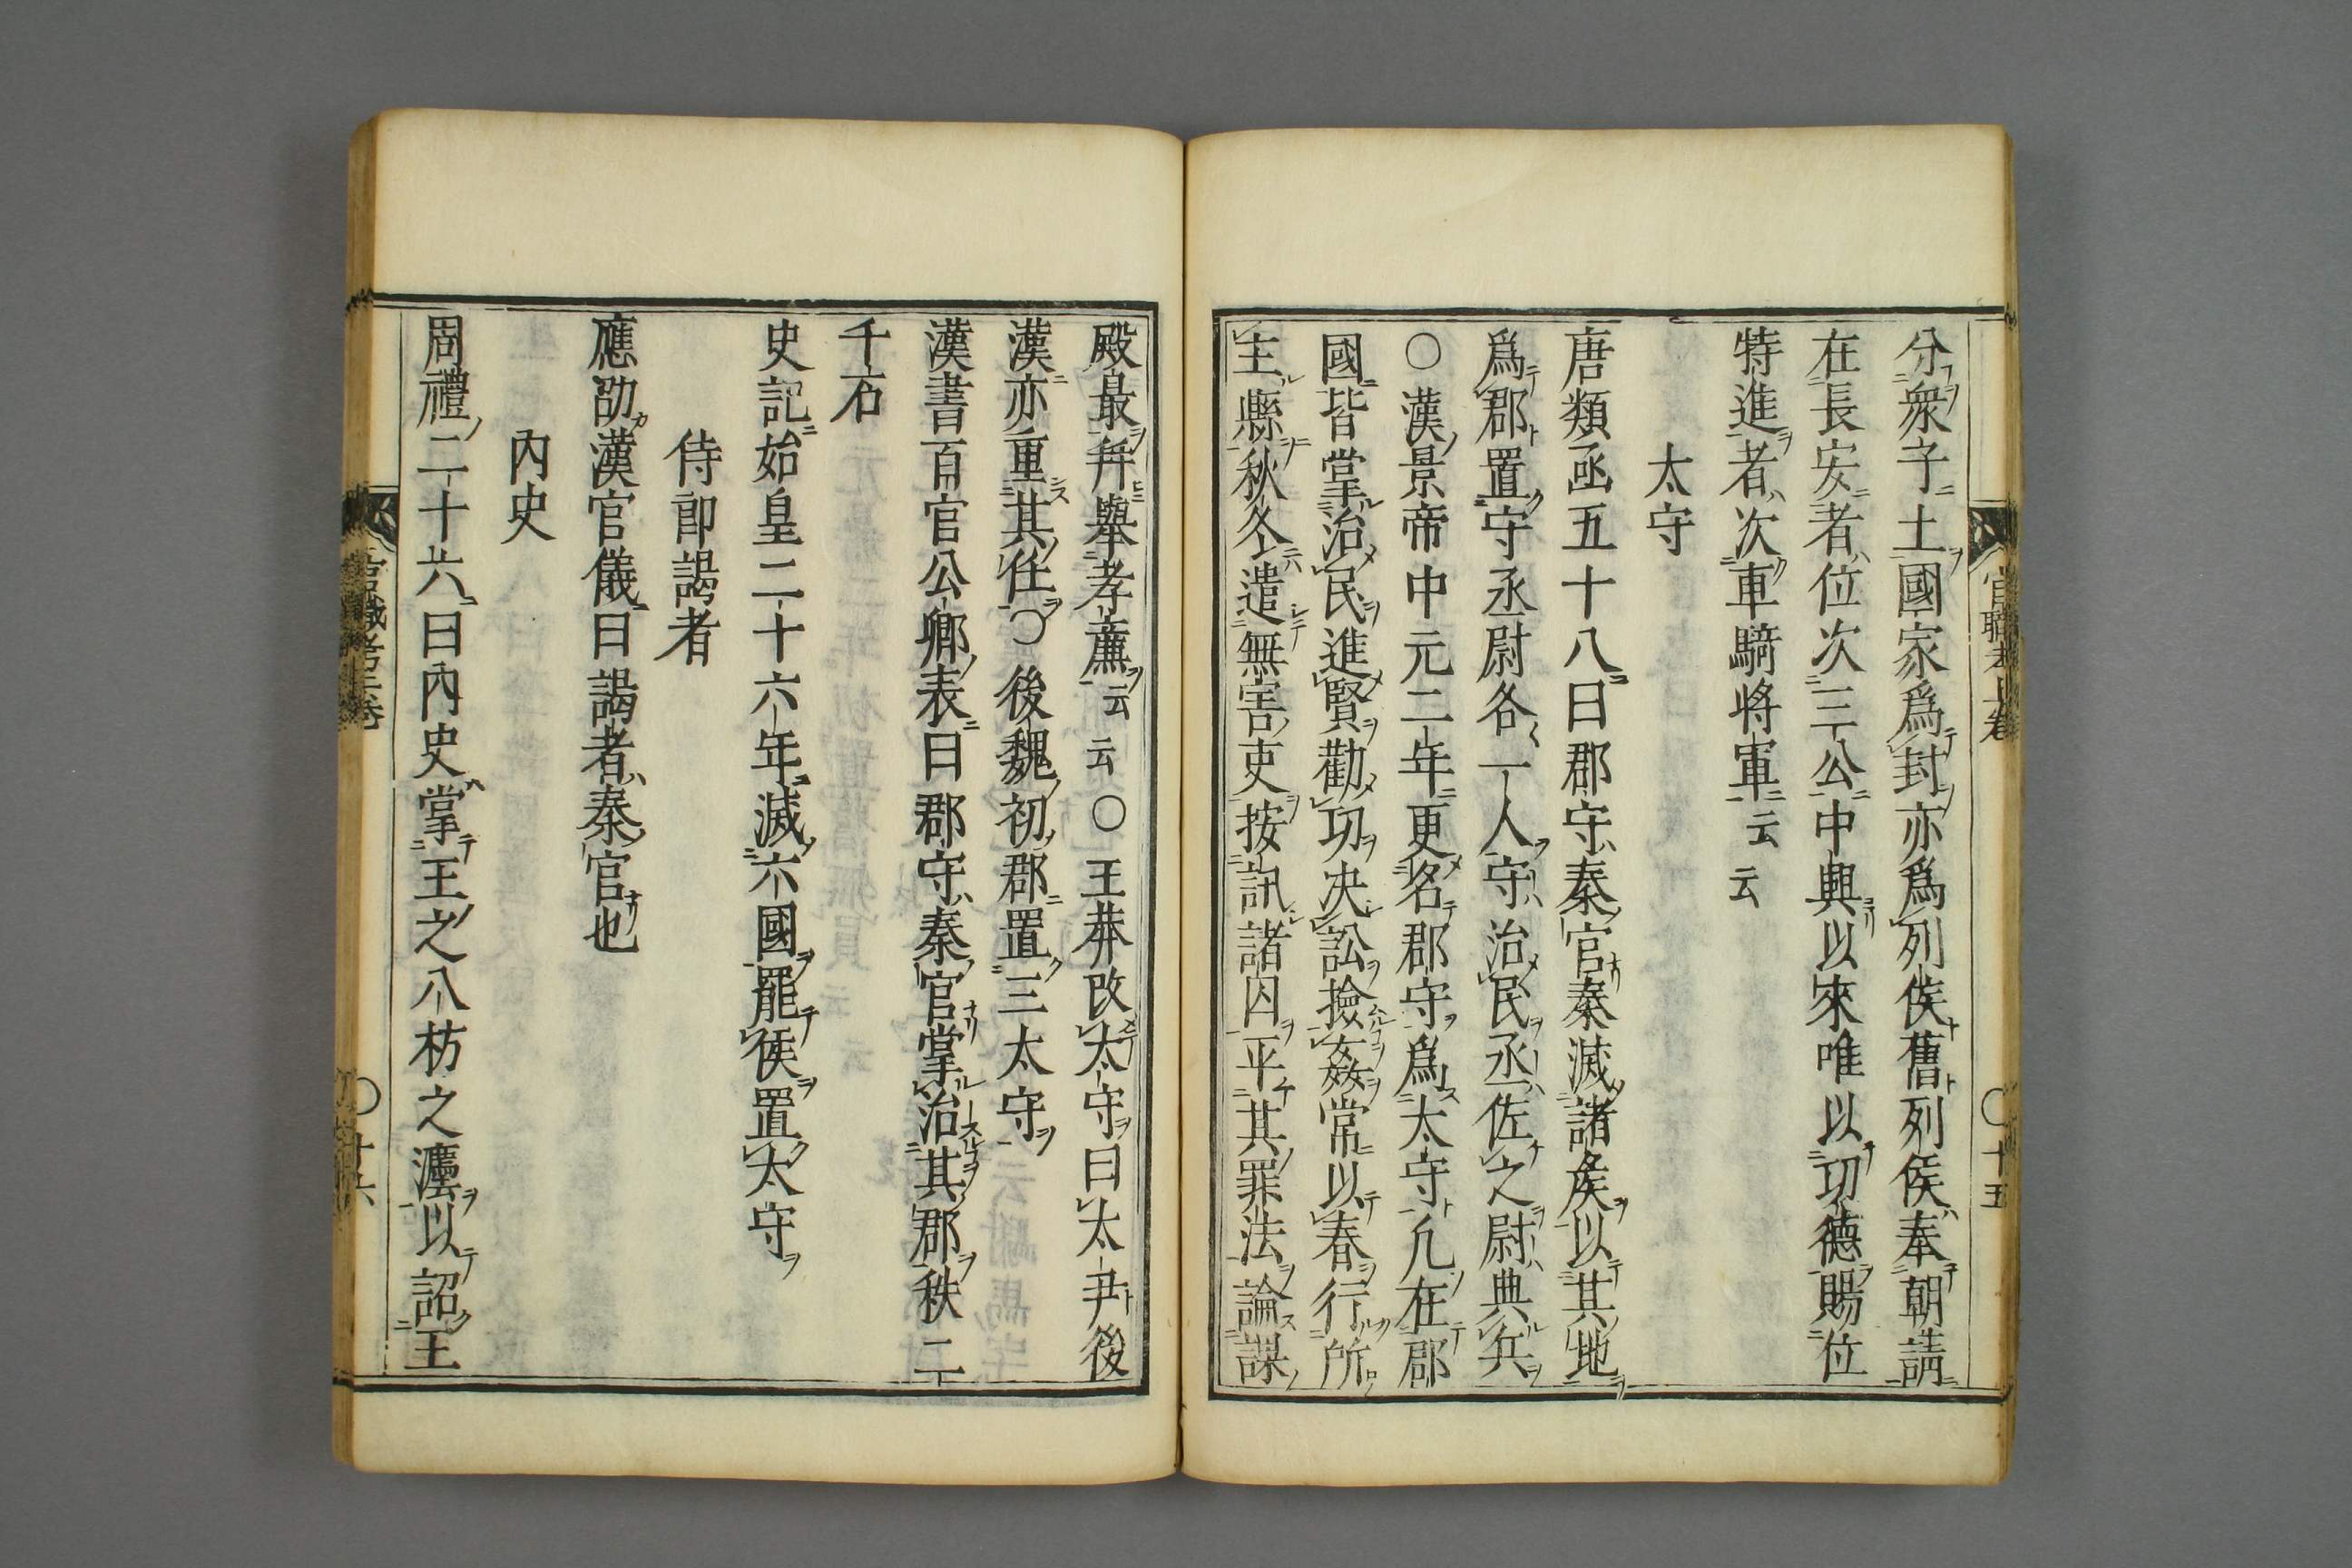 分衆子土國家爲封亦爲列侯舊列侯奉朝請
在長安者位次三公中興以來唯以功德賜位
特進者次車騎將軍云云
太守
唐類函五十八曰郡守秦官秦滅諸侯以其地
爲郡置守丞尉各一人守治民丞佐之尉典兵
〇漢景帝中元二年更名郡守爲太守凡在郡
國皆掌治民進賢勸功决訟撿姦常以春行所
主縣秋冬遣無害吏按訊諸囚平其罪法論課
官職考上卷
〇十五
殿最幷舉孝廉云云〇王莽改太守曰太尹後
漢亦重其任〇後魏初郡置三太守
漢書百官公卿表曰郡守秦官掌治其郡秩二
千石
史記始皇二十六年滅六國罷侯置太守
侍郎謁者
應劭漢官儀曰謁者秦官也
內史
周禮二十六曰內史掌王之八枋之灋以詔王
官職考上卷
〇十六